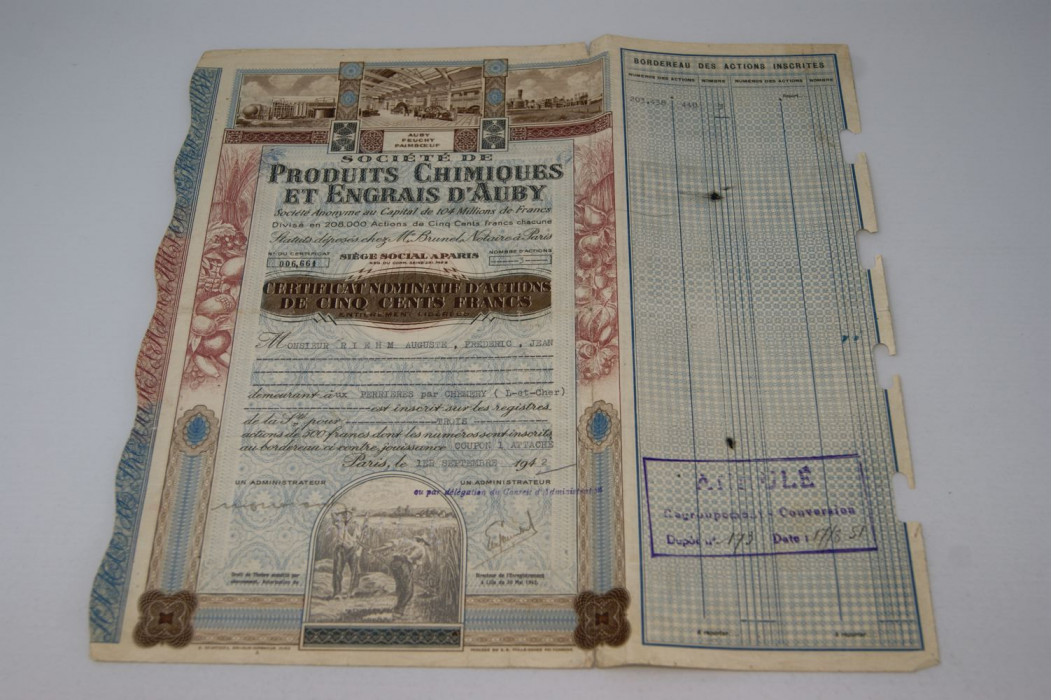 AUBY
FEUCHY
PAIMBŒUF
SOCIÉTÉ DE
PRODUITS CHIMIQUES
ET ENGRAIS D'AUBY
Société Anonyme au Capital de 104 Millions de Francs
Divisé en 208.000 Actions de Cinq Cents francs chacune
Statuts déposés chez Me Brunel, Notaire à Paris
N° DU CERTIFICAT
006,664
SIÈGE SOCIAL A PARIS
NOMBRE D'ACTIONS
CERTIFICAT NOMINATIF D'ACTIONS
DE CINQ CENTS FRANCS
ENTIÈREMENT LIBÉRÉES
MONSIEUR RIEHM AUGUSTE, FREDERIC, JEAN
demeurant aux PERRIERES par CHEMERY (L-et-Cher)
est inscrit sur les registres
de la Sté pour TROIS
actions de 500 francs dont les numéros sont inscrits
au bordereau ci contre, jouissance COUPON 1 ATTACHE
Paris, le 1ER SEPTEMBRE 1942
UN ADMINISTRATEUR
UN ADMINISTRATEUR
ou par délégation du Conseil d'Administration
Droit de Timbre acquitté par
abonnement, Autorisation du
Directeur de l'Enregistrement
à Lille du
BORDEREAU DES ACTIONS INSCRITES
NUMÉROS DES ACTIONS NOMBRE NUMÉROS DES ACTIONS NOMBRE
Report
201.438 440 3
ANNULÉ
Regroupement - Conversion
Dépôt n° 173 Date :
à reporter
à reporter